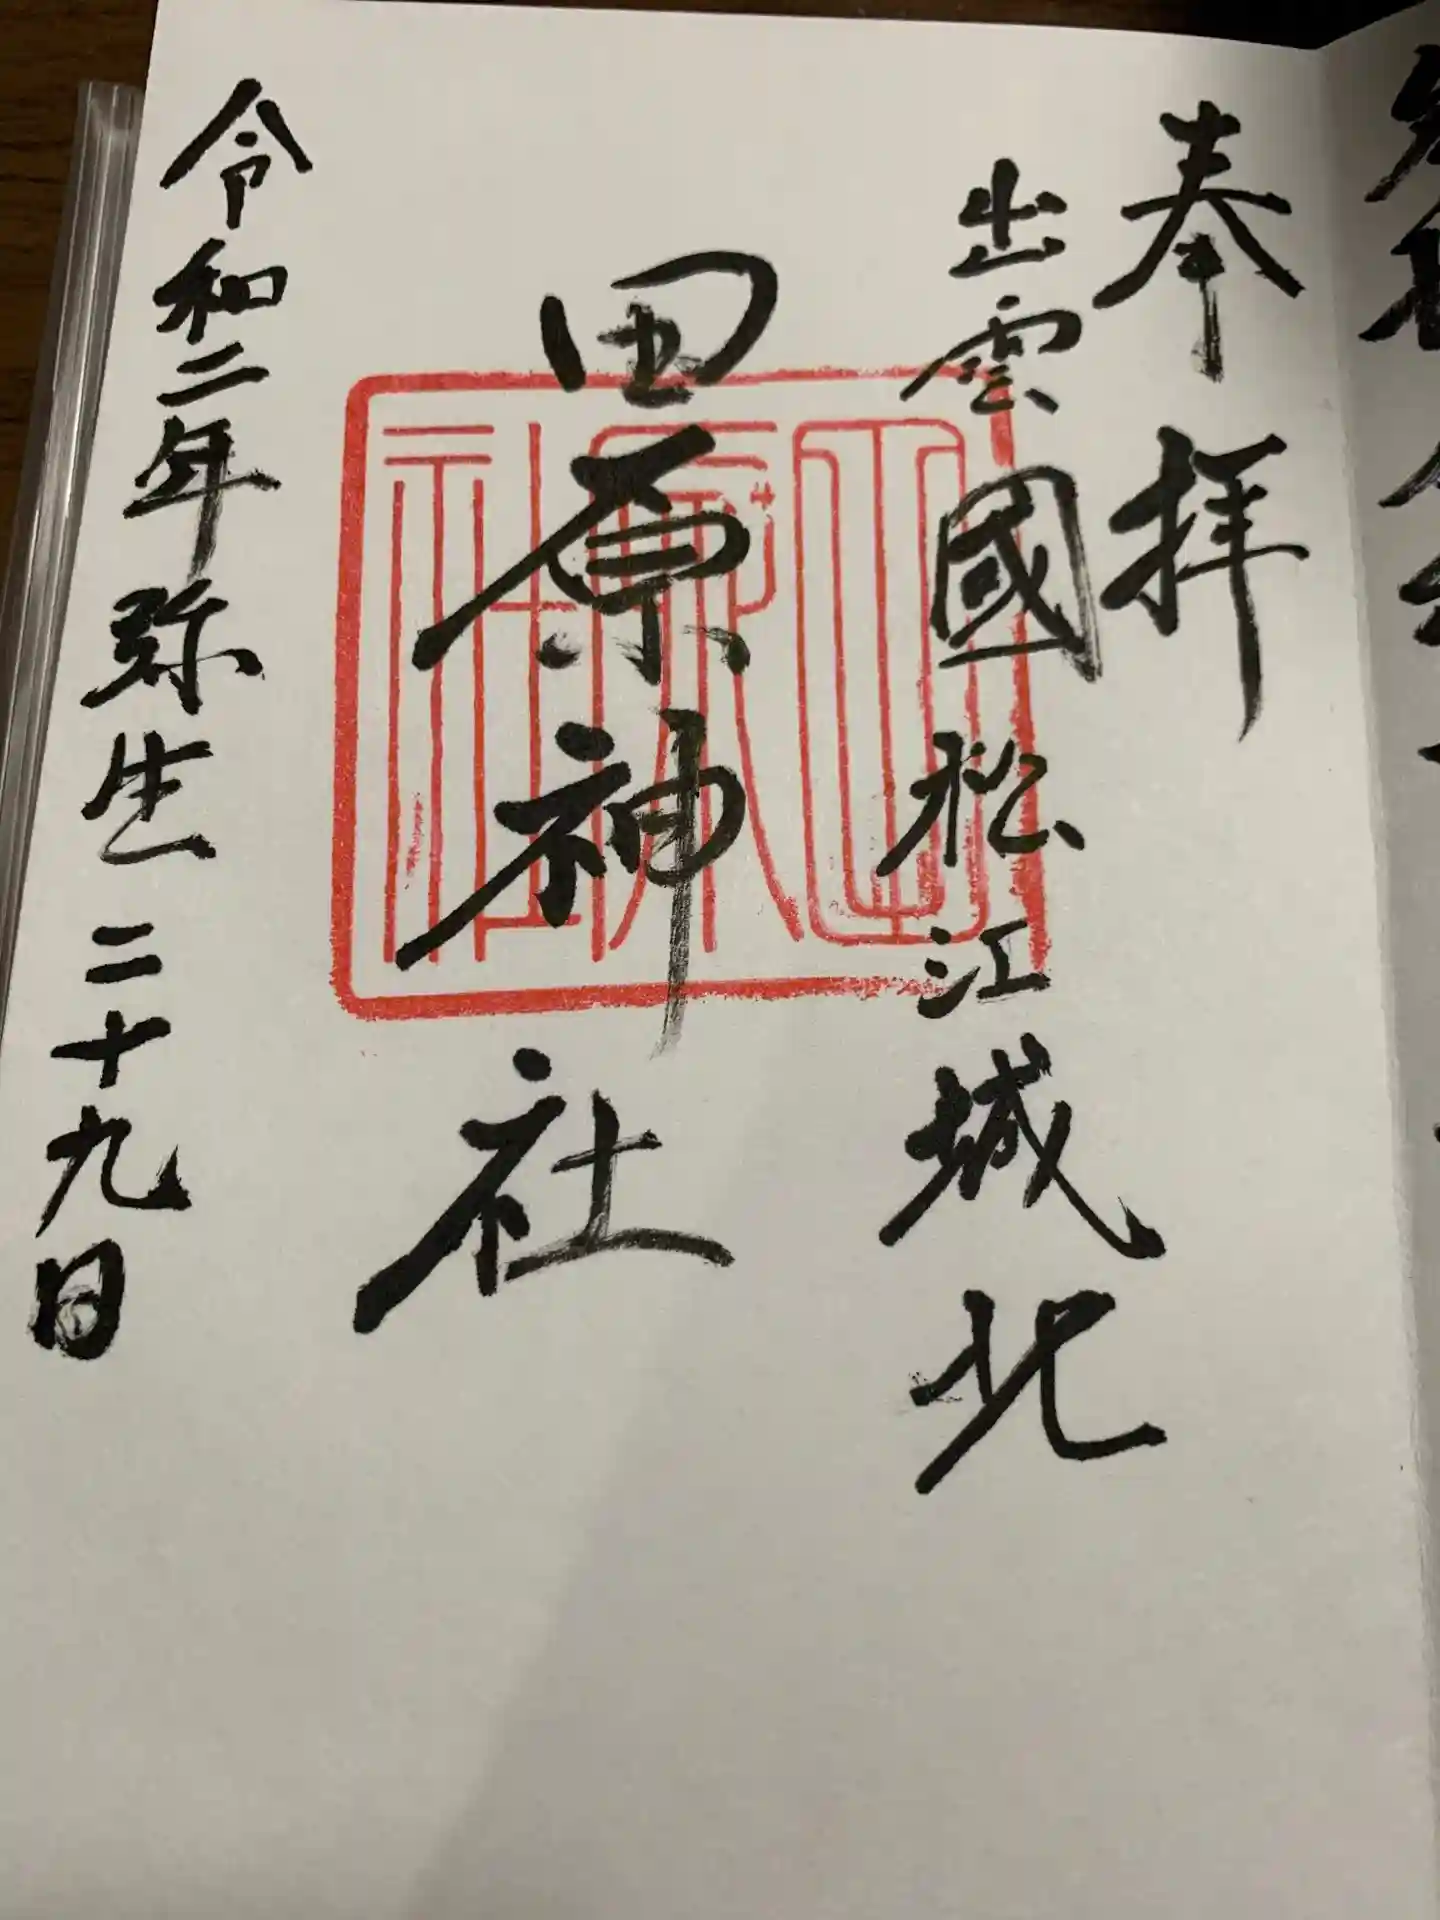 奉拝
出雲國松江城北
田原神社
田原社
令和二年弥生二十九日